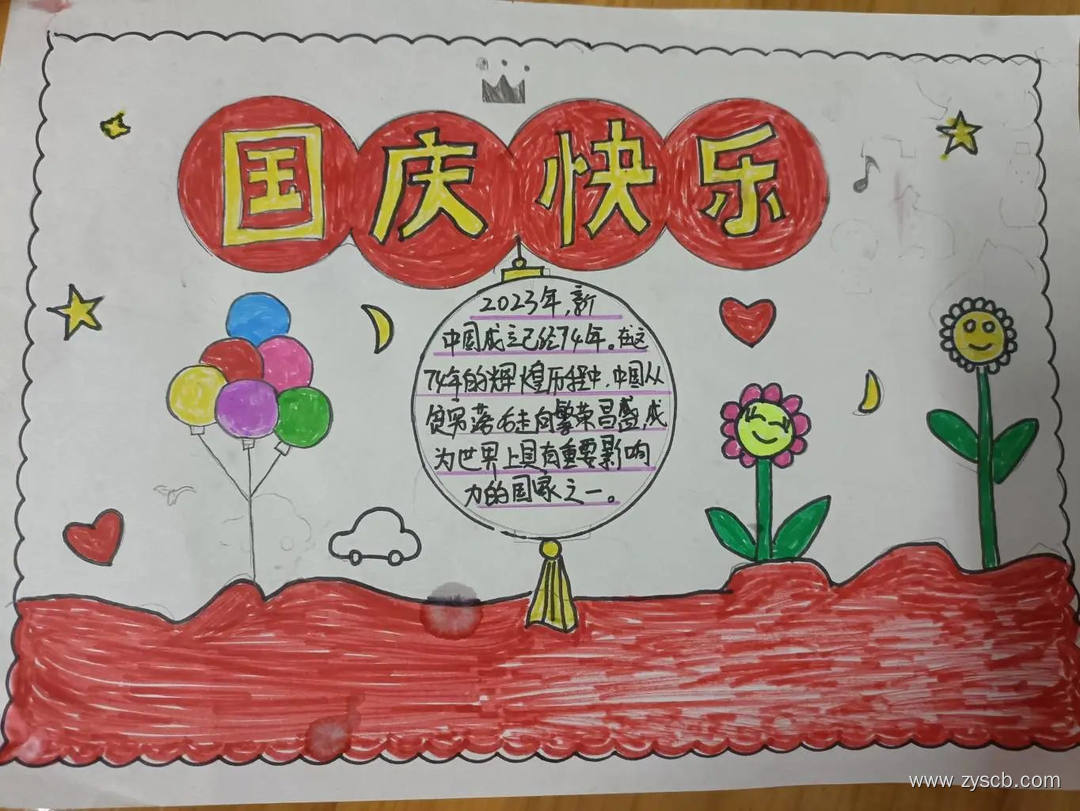 国庆快乐
2023年,新
中国成立已经74年。在这
74年的辉煌历程中,中国从
贫穷落后走向繁荣昌盛,成
为世界上具有重要影响
力的国家之一。
www.zyscb.com